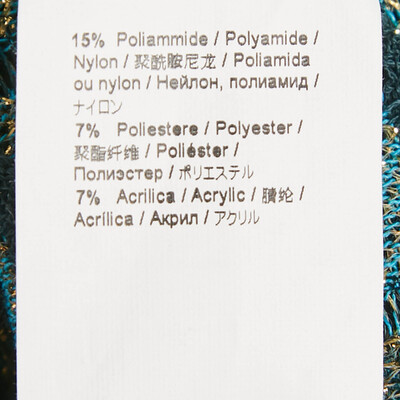 15% Poliammide / Polyamide /
Nylon / 聚酰胺尼龙 / Poliamida
ou nylon / Нейлон, полиамид /
ナイロン
7% Poliestere / Polyester /
聚酯纤维 / Poliéster /
Полиэстер / ポリエステル
7% Acrilica / Acrylic / 腈纶 /
Acrílica / Акрил / アクリル